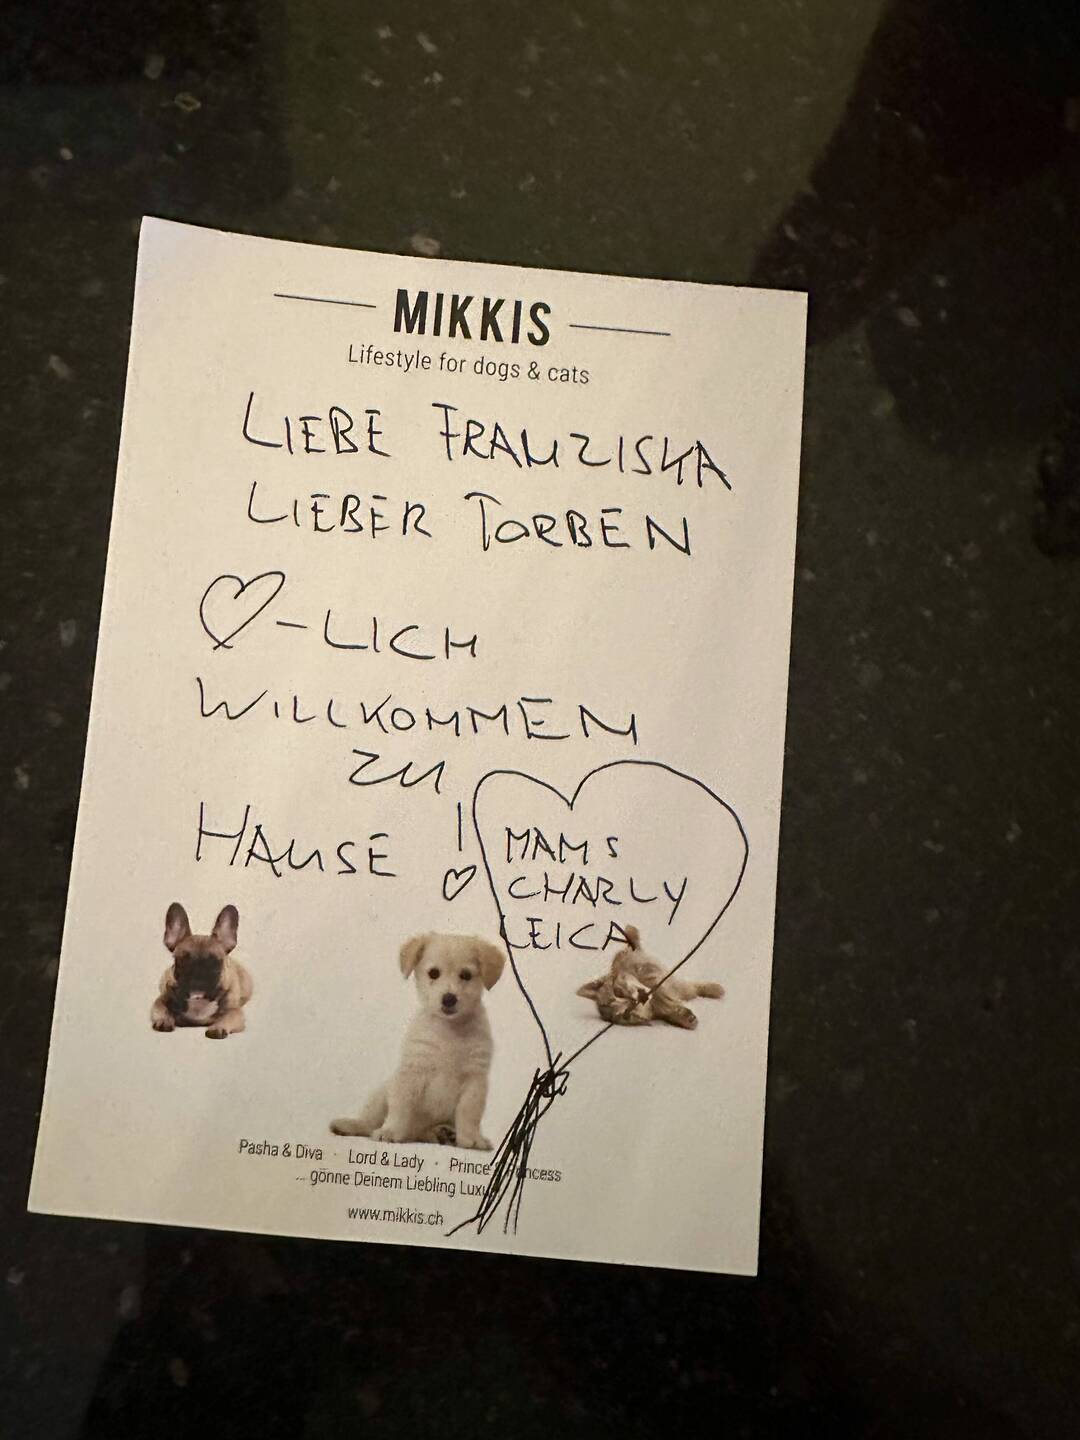 MIKKIS
Lifestyle for dogs & cats
LIEBE FRANZISKA
LIEBER TORBEN
♡-LICH
WILLKOMMEN
ZU
HAUSE !
♡
MAMS
CHARLY
LEICA
Pasha & Diva · Lord & Lady · Prince
... gönne Deinem Liebling
www.mikkis.ch